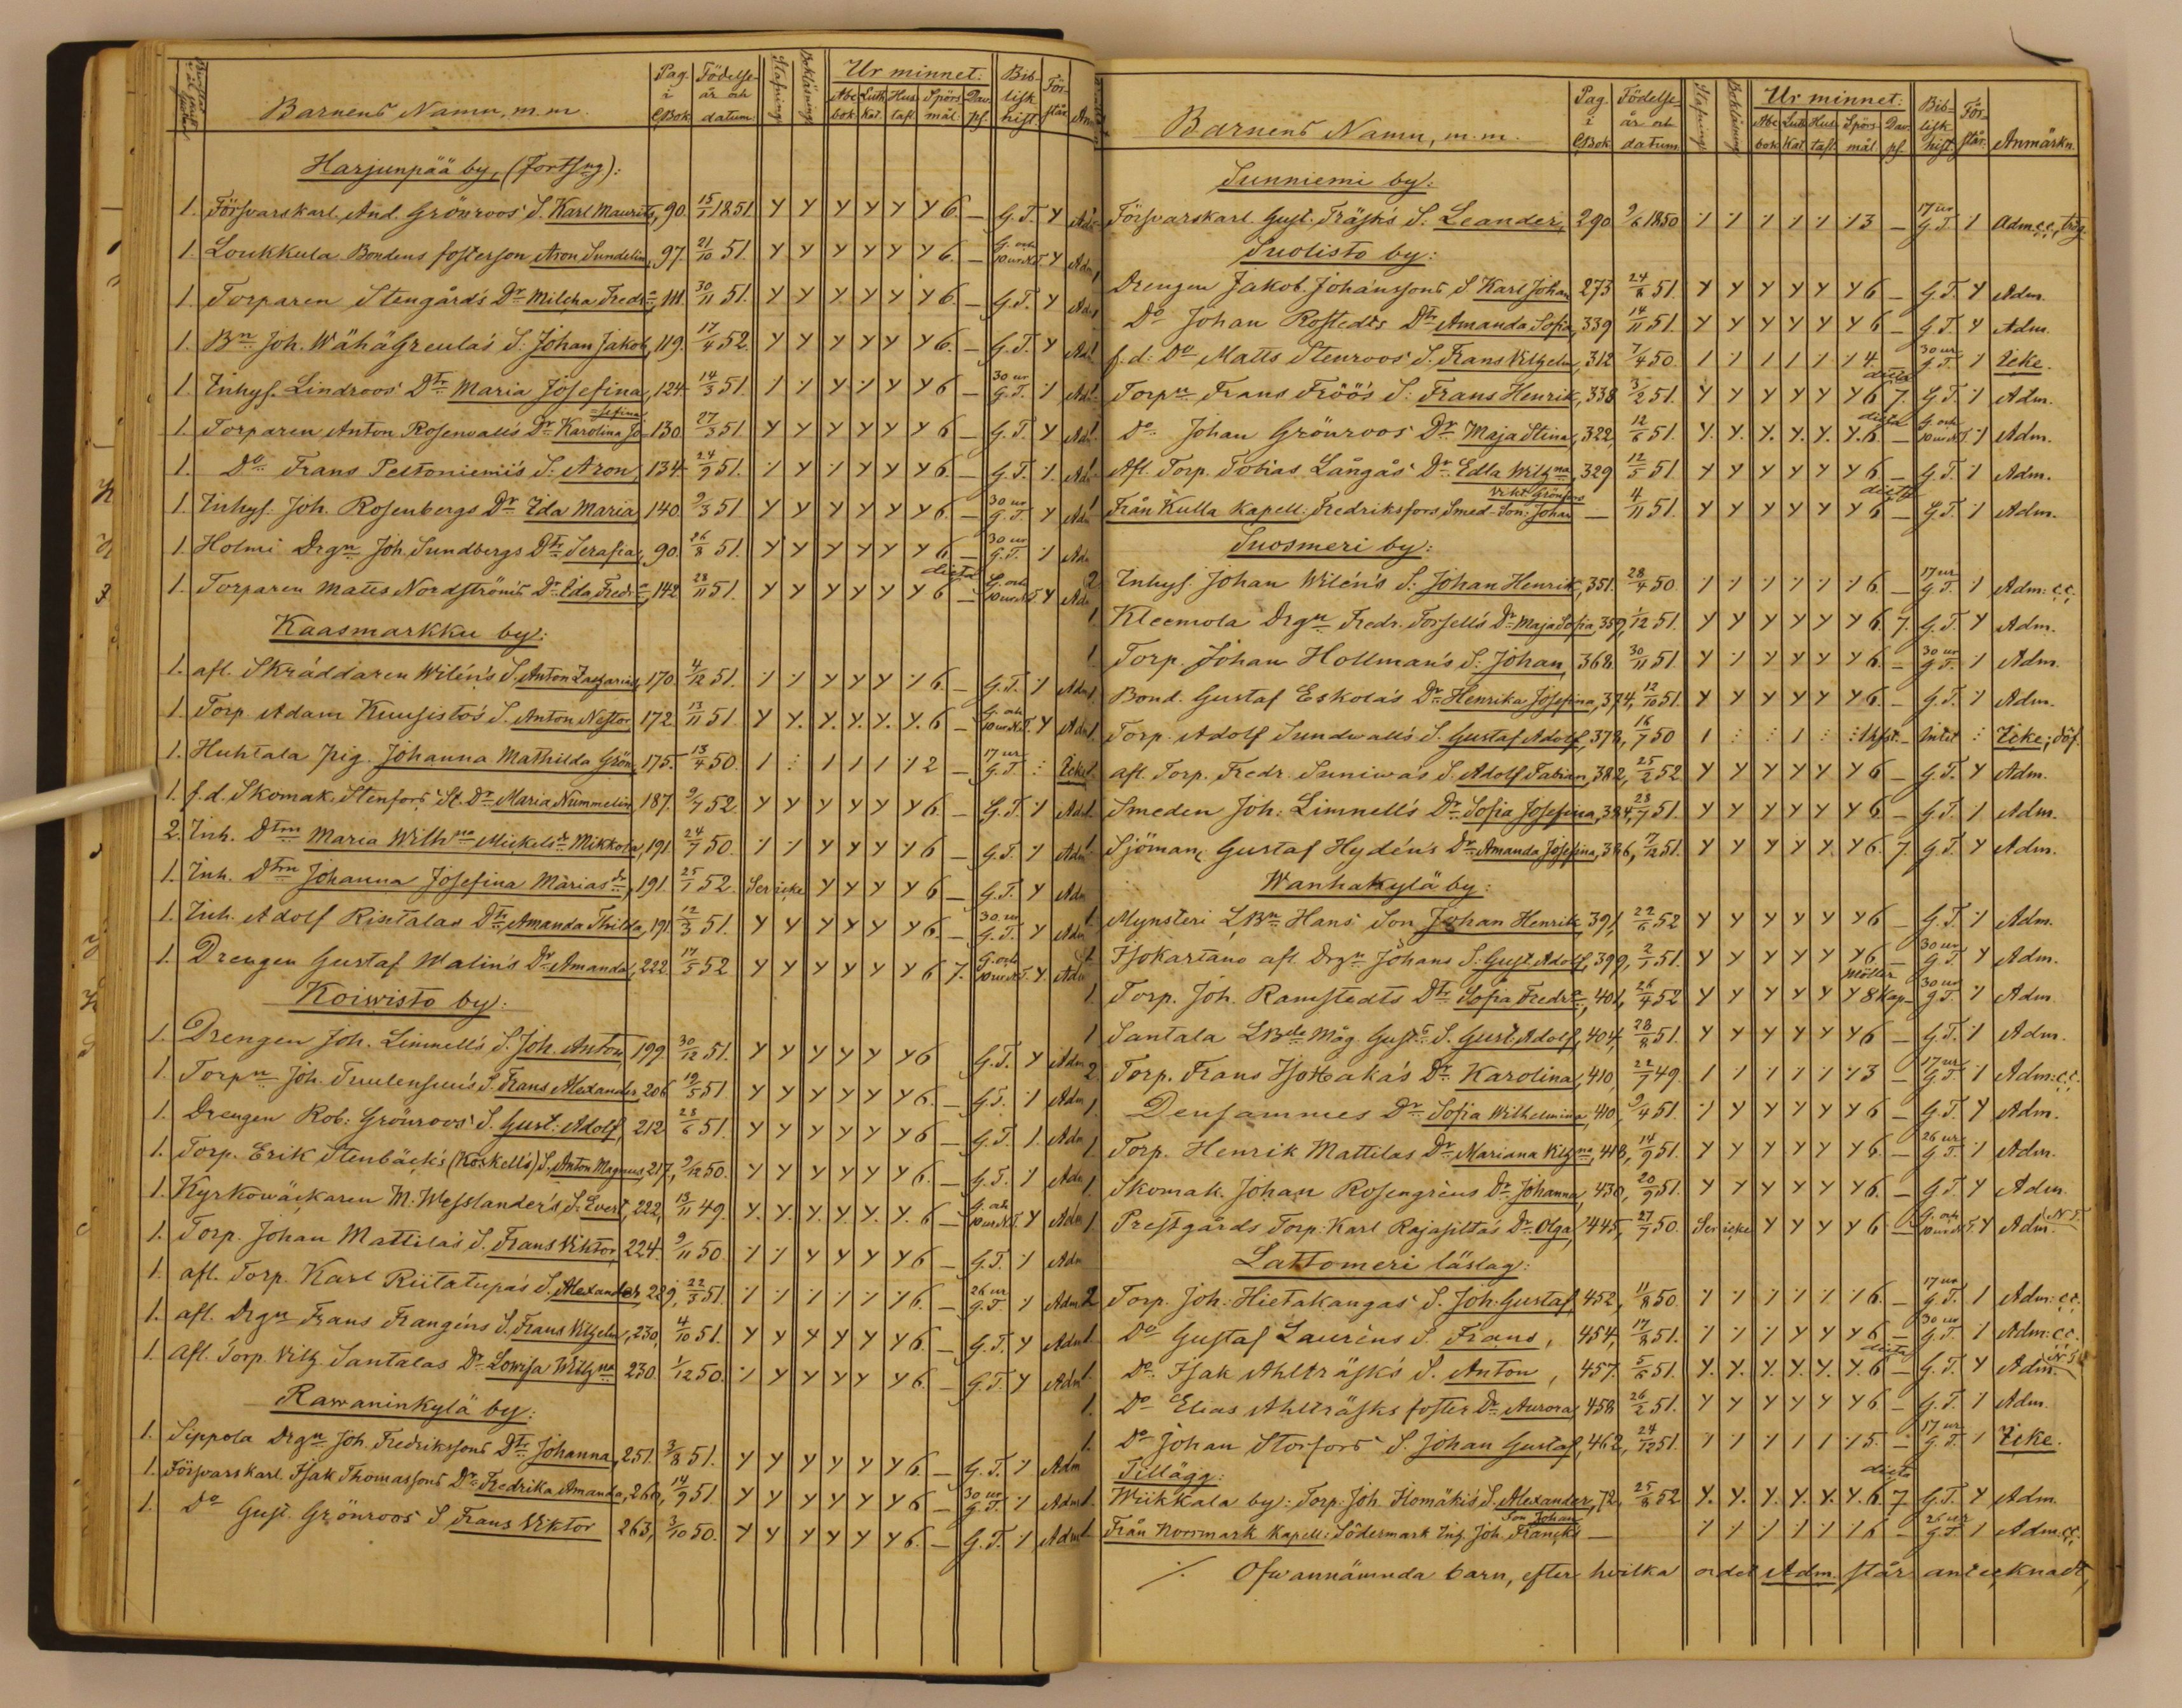 Barnens Namn, m.m. Pag. i C.Bok. Födelse- år och datum Stafning Bokläsning Ur minnet: Abc bok. Luth. Kat. Hus tafl. Spörs mål. Dav. ps. Bib- lisk hist. För- står
Harjunpää by, (Fortsng):
1. Försvarskarl. And. Grönroos' S. Karl Maurits, 90. 15/1 1851. Y Y Y Y Y Y 6. — G.T. Y
1. Loukkula Bondens fosterson Aron Sundelin, 97. 21/10 51. Y Y Y Y Y Y 6. — G. och Y
1. Torparen Stengård's Dr Milcha Fredr:a, 111. 30/11 51. Y Y Y Y Y Y 6. — G.T. Y
1. Bn Joh. WähäGreula's S. Johan Jakob, 119. 17/4 52. Y Y Y Y Y Y 6. — G.T. Y
1. Inhys. Lindroos' Dtr Maria Josefina, 124. 14/3 51. 1 ⁒ Y ⁒ Y Y 6 — 30 ur G.T. ⁒
1. Torparen Anton Rosenvall's Dr Karolina Jo- sefina 130. 27/3 51. Y Y Y Y Y Y 6 — G.T. Y
1. Do Frans Peltoniemi's S. Aron, 134. 24/9 51. ⁒ Y ⁒ Y Y Y 6. — G.T. ⁒
1. Inhys. Joh. Rosenbergs Dr Ida Maria, 140. 9/3 51 Y Y Y Y Y Y 6. — 30 ur G.T. Y
1. Holmi Drgn Joh. Sundbergs Dtr Serafia, 90. 26/8 51. Y Y Y Y Y Y 6 — 30 ur G.T. ⁒
1. Torparen Matts Nordström's Dr Ida Fredr:a, 142. 28/11 51. Y Y Y Y Y Y 6 — G. och Y
Kaasmarkku by:
1. afl. Skräddaren Wilén's S. Anton Zacharias, 170. 4/12 51. ⁒ ⁒ Y Y Y ⁒ 6. — G.T. ⁒
1. Torp. Adam Kuusisto's S. Anton Nestor, 172. 13/11 51. Y Y. Y. Y. Y. Y. 6 — G. och Y
1. Huhtala pig. Johanna Mathilda Grön, 175. 13/4 50. 1 : 1 1 1 ⁒ 2 — 17 ur G.T. : Icke
1. f.d. Skomak. Stenfors' St. Dr Maria Nummelin, 187. 9/7 52. Y Y Y Y Y Y 6. — G.T. ⁒
2. Inh. Dtrn Maria Wilhna Mickelsdr Mikkola, 191. 24/7 50. ⁒ ⁒ Y Y Y ⁒ 6 — G.T. ⁒
1. Inh. Dtrn Johanna Josefina Mariasdr, 191. 25/1 52. Ser icke Y Y Y Y 6 — G.T. Y
1. Inh. Adolf Ristalas Dtr Amanda Thilda, 191. 12/3 51. Y Y Y Y Y Y 6. — 30 ur G.T. Y
1. Drengen Gustaf Walin's Dr Amanda, 222. 17/5 52 Y Y Y Y Y Y 6 7. G. och Y.
Koiwisto by:
1. Drengen Joh. Limnell's S. Joh. Anton, 199. 30/12 51. Y Y Y Y Y Y 6 G.T. Y Adm
1. Torpn Joh. Tuulensuu's S. Frans Alexander, 206. 19/5 51 Y Y Y Y Y Y 6. — G.T. ⁒ Adm
1. Drengen Rob: Grönroos' S. Gust: Adolf, 212 28/6 51. Y Y Y Y Y Y 6 — G.T. 1. Adm
1. Torp. Erik Stenbäck's (Koskell's) S. Anton Magnus, 217, 9/12 50. Y Y Y Y Y Y 6. — G.T. ⁒ Adm
1. Kyrkowäckaren M. Wesslander's S. Evert, 222, 13/11 49. Y. Y. Y. Y. Y. Y. 6 — G. och Y Adm
1. Torp. Johan Mattila's S. Frans Viktor, 224. 9/11 50. ⁒ ⁒ Y Y Y Y 6 — G.T. ⁒ Adm
1. afl. Torp. Karl Riitatupa's S. Alexander, 229, 22/3 51. ⁒ ⁒ ⁒ ⁒ ⁒ ⁒ 6. — 26 ur G.T. ⁒ Adm
1. afl. Drgn Frans Frangén's S. Frans Vilhelm, 230, 4/10 51. Y Y Y Y Y Y 6. — G.T. Y Adm
1. Afl. Torp. Vilh. Santalas Dr Lowisa Wilhna 230. 1/12 50. ⁒ Y Y Y Y Y 6. — G.T. Y Adm
Rawaninkylä by:
1. Sippola Drgn Joh. Fredrikssons Dtr Johanna, 251. 3/8 51. Y Y Y Y Y Y 6. — G.T. ⁒ Adm
1. Försvarskarl. Isak Thomassons Dr Fredrika Amanda, 260, 14/9 51. Y Y Y Y Y Y 6 — 30 ur G.T. ⁒ Adm
1. Do Gust. Grönroos' S. Frans Viktor 263, 3/10 50. Y Y Y Y Y Y 6. — G.T. ⁒ Adm
Barnens Namn, m.m. Pag. i C.Bok. Födelse- år och datum Stafning Bokläsning Ur minnet: Abc bok. Luth. Kat. Hus tafl. Spörs mål. Dav. ps. Bib- lisk hist. För- står. Anmärkn.
Sunniemi by:
Försvarskarl. Gust. Träsk's S. Leander, 290 9/6 1850 ⁒ ⁒ ⁒ ⁒ ⁒ ⁒ 3 — 17 ur G.T. ⁒ Adm: c.c.,
Suolisto by:
1 Drengen Jakob Johanssons S. Karl Johan 273 24/8 51. Y Y Y Y Y Y 6 — G.T. Y Adm.
Do Johan Rostedts Dtr Amanda Sofia, 339 14/11 51. Y Y Y Y Y Y 6 — G.T. Y Adm.
f.d. Do Matts Stenroos' S. Frans Vilhelm, 312 7/4 50. 1 ⁒ 1 1 ⁒ ⁒ 4. 30 ur G.T. ⁒ Icke.
Torpn Frans Fröö's S. Frans Henrik, 338 3/2 51. Y Y Y Y Y Y 6 7. G.T. ⁒ Adm.
Do Johan Grönroos' Dr Maja Stina, 322, 12/6 51. Y. Y. Y. Y. Y. Y. 6. — G. och ⁒ Adm.
Afl. Torp. Tobias Långås' Dr Edla Wilhna, 329 12/5 51 Y Y Y Y Y Y 6 — G.T. ⁒ Adm.
Från Kulla Kapell: Fredriksfors, Smed Son: Johan — 4/11 51. Y Y Y Y Y Y 6 — G.T. ⁒ Adm.
Suosmeri by:
2 Inhys. Johan Wilén's S. Johan Henrik, 351. 28/4 50 ⁒ ⁒ ⁒ ⁒ ⁒ ⁒ 6. — 17 ur G.T. ⁒ Adm: c.c.
1. Kleemola Drgn Fredr. Forsell's Dr Maja Sofia, 359, 1/12 51. Y Y Y Y Y Y 6 7. G.T. Y Adm.
1. Torp. Johan Hollman's S. Johan, 368. 30/11 51 Y ⁒ Y Y Y Y 6. — 30 ur G.T. ⁒ Adm.
1. Bond. Gustaf Eskola's Dr Henrika Josefina, 374, 12/10 51. Y Y Y Y Y Y 6. — G.T. ⁒ Adm.
1. Torp. Adolf Sundwall's S. Gustaf Adolf, 378, 16/7 50 1 : : 1 : : — Intet : Icke; döf.
1. afl. Torp. Fredr. Suniwa's S. Adolf Fabian, 382, 25/2 52 Y Y Y Y Y Y 6 — G.T. Y Adm.
1. Smeden Joh: Limnell's Dr Sofia Josefina, 384, 28/7 51. Y Y Y Y Y Y 6 — G.T. ⁒ Adm.
1. Sjöman Gustaf Hydén's Dr Amanda Josefina, 386, 7/12 51. Y Y Y Y Y Y 6. 7. G.T. Y Adm.
Wanhakylä by:
1. Mynsteri LBn Hans' Son Johan Henrik, 391, 22/6 52 Y Y Y Y Y Y 6 — G.T. ⁒ Adm.
Isokartano afl. Drgn Johans S. Gust. Adolf, 399, 2/1 51. Y Y Y Y Y Y 6 — 30 ur G.T. Y Adm.
1. Torp. Joh. Ramstedts Dtr Sofia Fredr:a, 401, 26/4 52 Y Y Y Y Y Y 8 Kap. — 30 ur G.T. ⁒ Adm.
1 Santala LBds Måg Gust:s S. Gust. Adolf, 404, 28/8 51. Y Y Y Y Y Y 6 — G.T. ⁒ Adm.
2. Torp. Frans IsoHaka's Dr Karolina, 410, 22/7 49. 1 1 ⁒ ⁒ ⁒ ⁒ 3 — 17 ur G.T. ⁒ Adm: c.c.
1. Densammes Dr Sofia Wilhelmina, 410, 9/4 51. ⁒ Y Y Y Y Y 6 — G.T. Y Adm.
1. Torp. Henrik Mattilas Dr Mariana Vilhna, 418, 14/9 51. Y Y Y Y Y Y 6. — 26 ur G.T. ⁒ Adm.
1. Skomak. Johan Rosengréns Dr Johanna, 430, 20/9 51. Y Y Y Y Y Y 6. — G.T. Y Adm.
1. Prestgårds Torp. Karl Rajasilta's Dr Olga, 445, 27/7 50. Ser icke Y Y Y Y 6 — G. och Y Adm. N.T.
Lattomeri läslag:
2 Torp. Joh. Hietakangas' S. Joh. Gustaf, 452, 11/8 50. ⁒ ⁒ ⁒ ⁒ ⁒ ⁒ 6. — 17 ur G.T. 1 Adm: c.c.
1. Do Gustaf Lauréns S. Frans, 454, 17/8 51. ⁒ ⁒ ⁒ Y Y Y 6 — 30 ur G.T. ⁒ Adm: c.c.
1. Do Isak Ahlträsk's S. Anton, 457. 5/6 51. Y. Y. Y. Y. Y. Y. 6 — G.T. Y Adm.
1. Do Elias Ahlträsks foster Dr Aurora, 458 26/2 51. Y Y Y Y Y Y 6 — G.T. ⁒ Adm.
1. Do Johan Storfors' S. Johan Gustaf, 462, 24/12 51. ⁒ ⁒ ⁒ 1 1 ⁒ 5. — 17 ur G.T. ⁒ Icke.
Tillägg:
1. Wiikkala by: Torp. Joh. Ilomäki's S. Alexander, 72, 25/8 52 Y. Y. Y. Y. Y. Y. 6. 7 G.T. Y Adm.
1 Från Norrmark Kapell: Södermark Inh. Joh. Francks Son Johan — ⁒ ⁒ ⁒ ⁒ ⁒ ⁒ 6 — 26 ur G.T. 1 Adm: c.c.
⁒ Ofwannämnda barn, efter hvilka ordet Adm. står antecknadt,